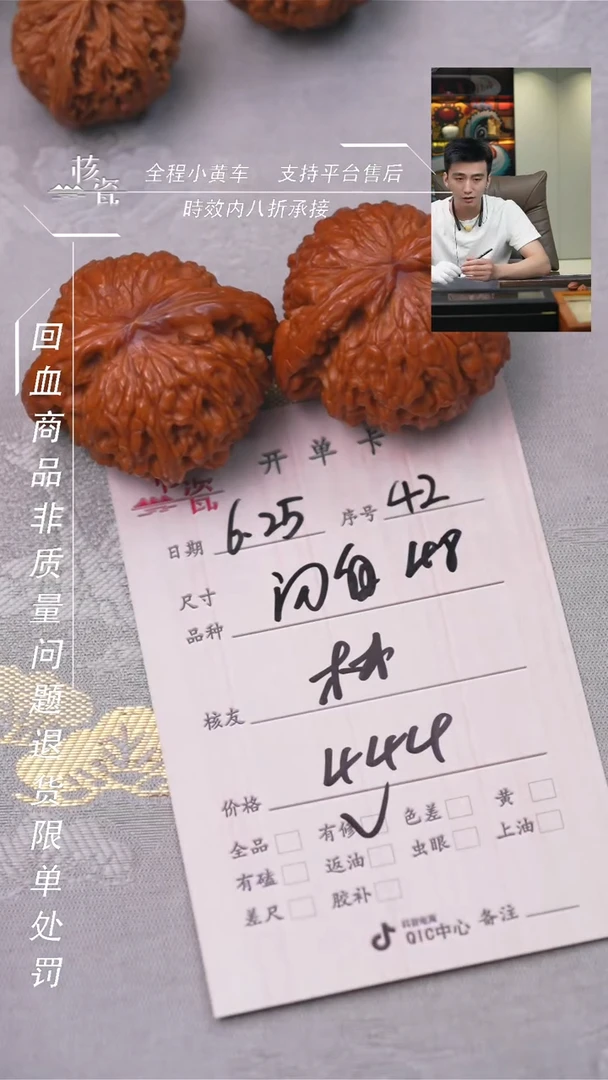 核瓷
全程小黄车 支持平台售后
時效内八折承接
回血商品非质量问题退货限单处罚
核瓷
开单卡
日期 6.25 序号 42
尺寸
品种 48
核友 林
价格 444
全品 有修 色差 黄
有磕 返油 虫眼 上油
差尺 胶补
抖音电商
QIC中心 备注